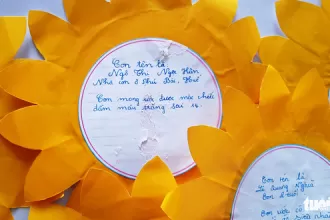 Con tên là
Ngô Thị Ngọc Hân,
Nhà con ở Phú Bài, Huế
Con mong ước được mặc chiếc
đầm màu trắng size 14.
Con tên là
Lê Quang Nghĩa
Con 8 tuổi
Con ước có